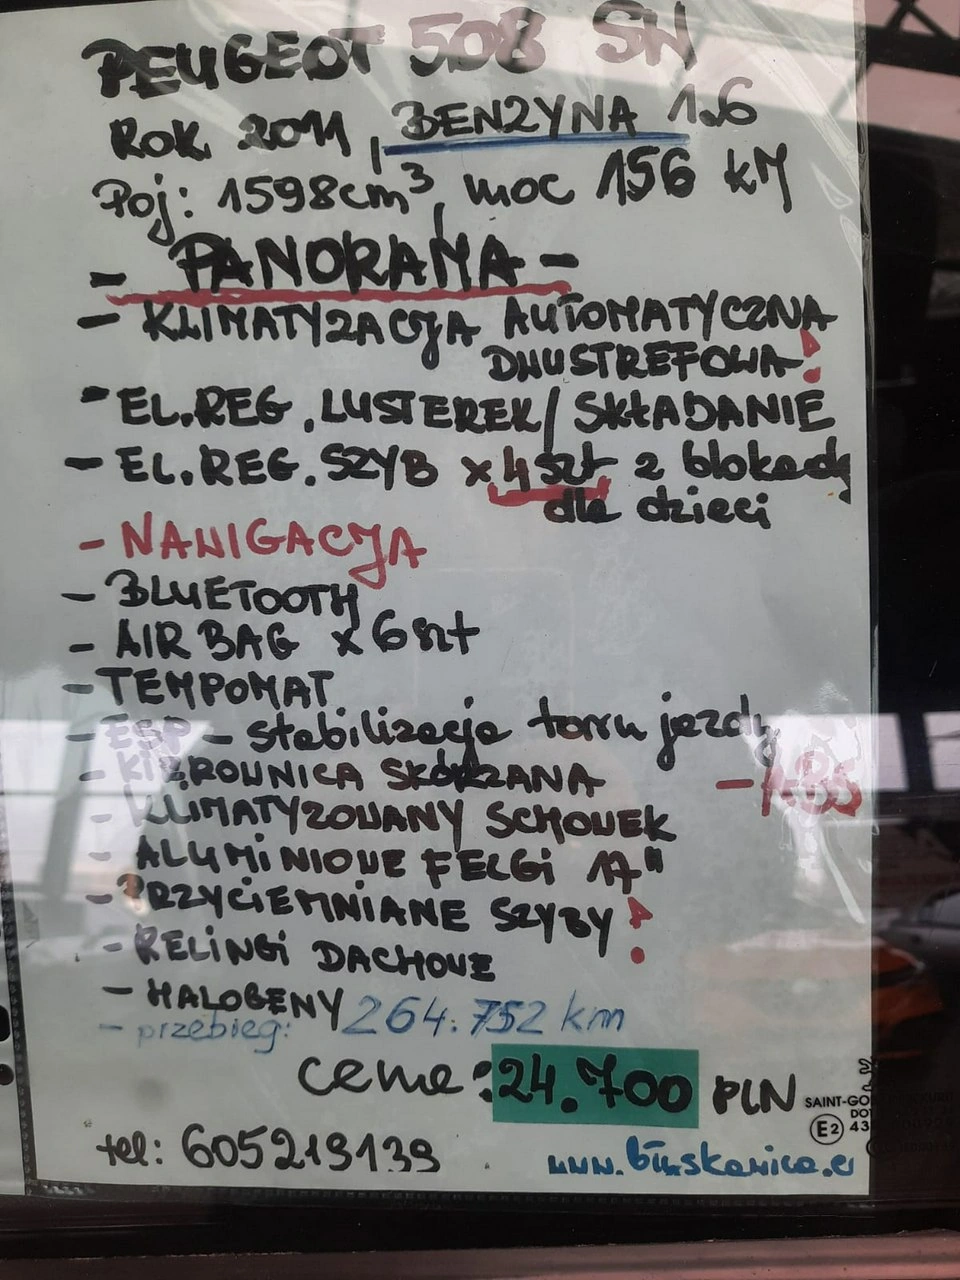 PEUGEOT 508 SW
ROK 2011, BENZYNA 1.6
Poj: 1598cm³, moc 156 KM
- PANORAMA -
- KLIMATYZACJA AUTOMATYCZNA
DWUSTREFOWA!
- EL.REG. LUSTEREK/SKŁADANIE
- EL.REG.SZYB x 4 szt z blokadą
dla dzieci
- NAWIGACJA
- BLUETOOTH
- AIR BAG x 6szt
- TEMPOMAT
- ESP - stabilizacja toru jazdy
- KIEROWNICA SKÓRZANA - ABS
- KLIMATYZOWANY SCHOWEK
- ALUMINIOWE FELGI 17"
- PRZYCIEMNIANE SZYBY!
- RELINGI DACHOWE
- HALOGENY
- przebieg: 264.752 km
cena: 24.700 PLN
tel: 605219139
SAINT-GO
DOT
E2 43